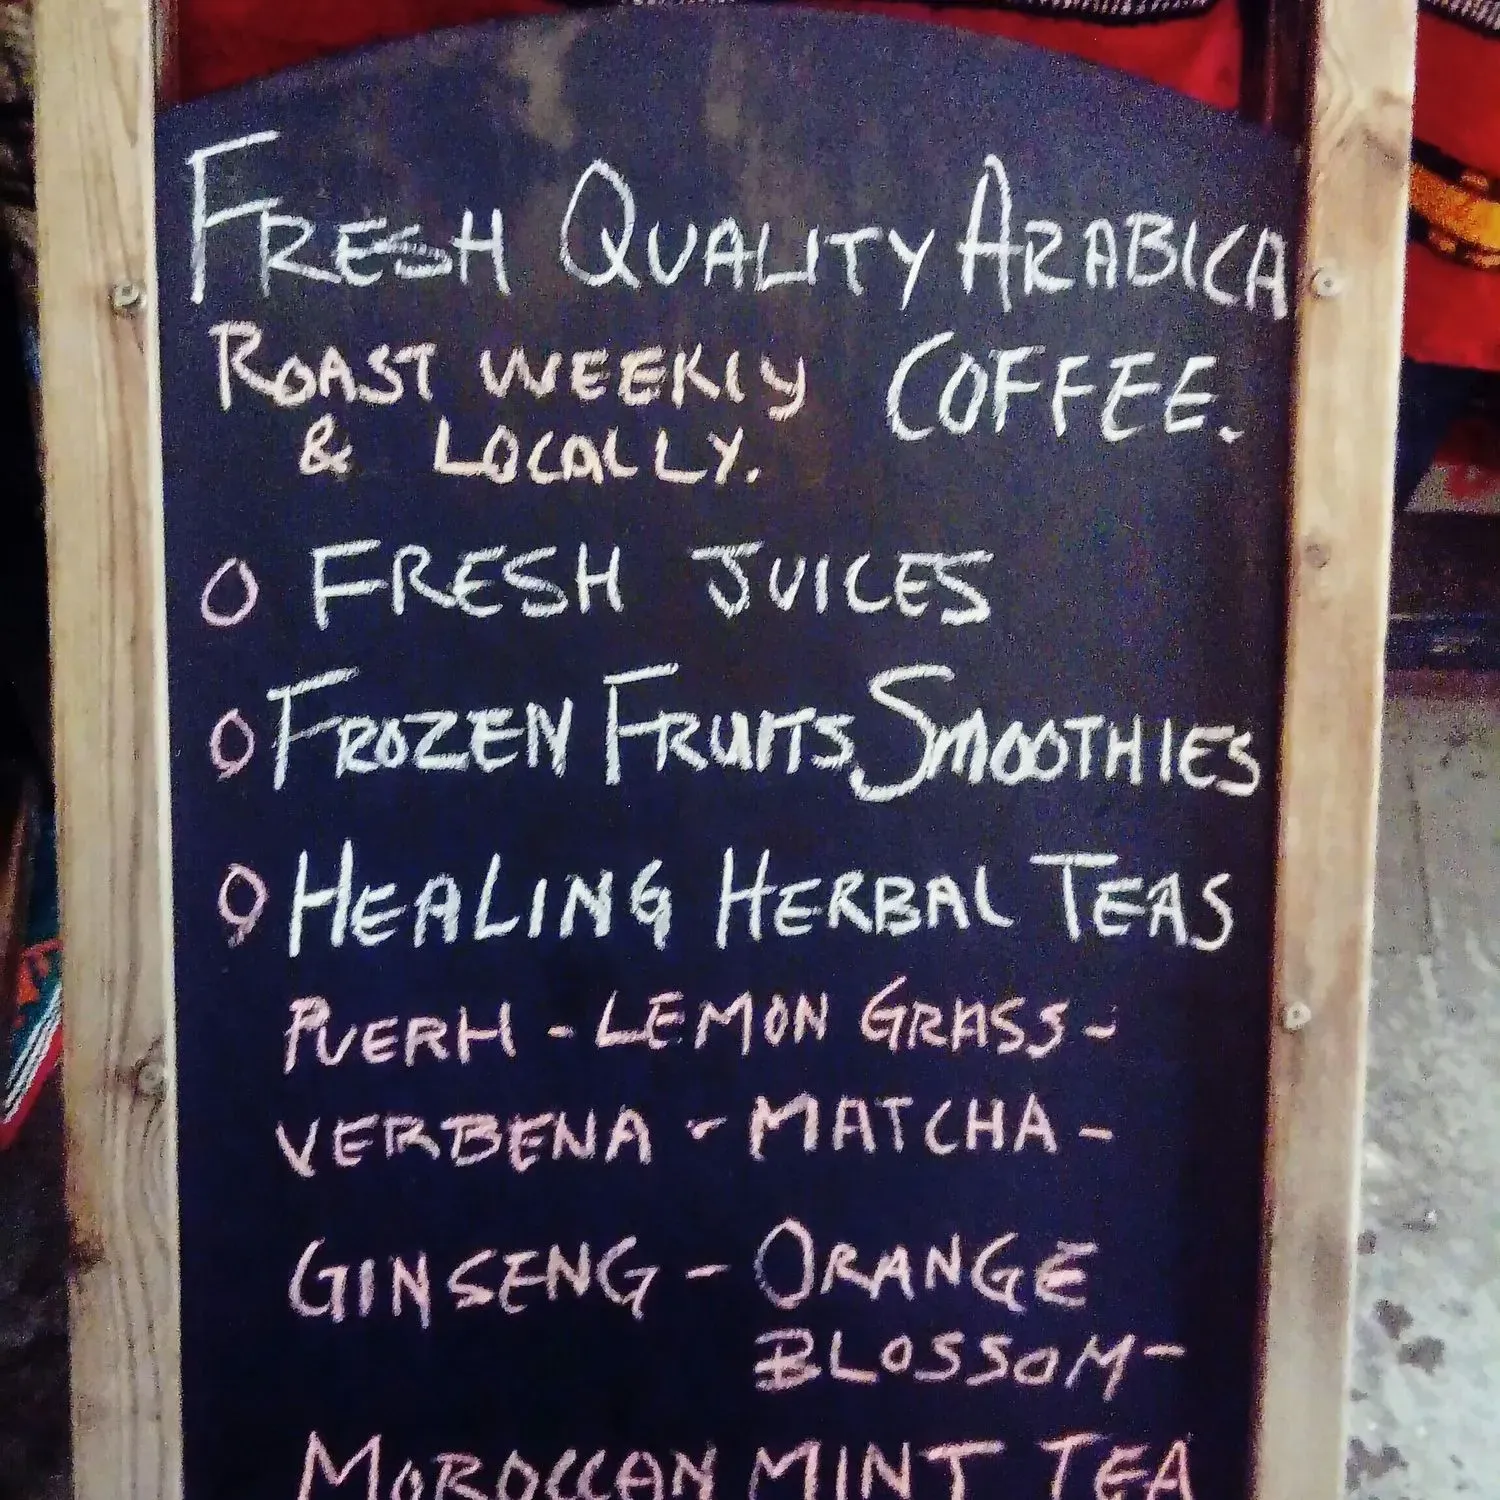 FRESH QUALITY ARABICA
ROAST WEEKLY COFFEE.
& LOCALLY.
O FRESH JUICES
O FROZEN FRUITS SMOOTHIES
O HEALING HERBAL TEAS
PUERH - LEMON GRASS -
VERBENA - MATCHA -
GINSENG - ORANGE
BLOSSOM -
MOROCCAN MINT TEA